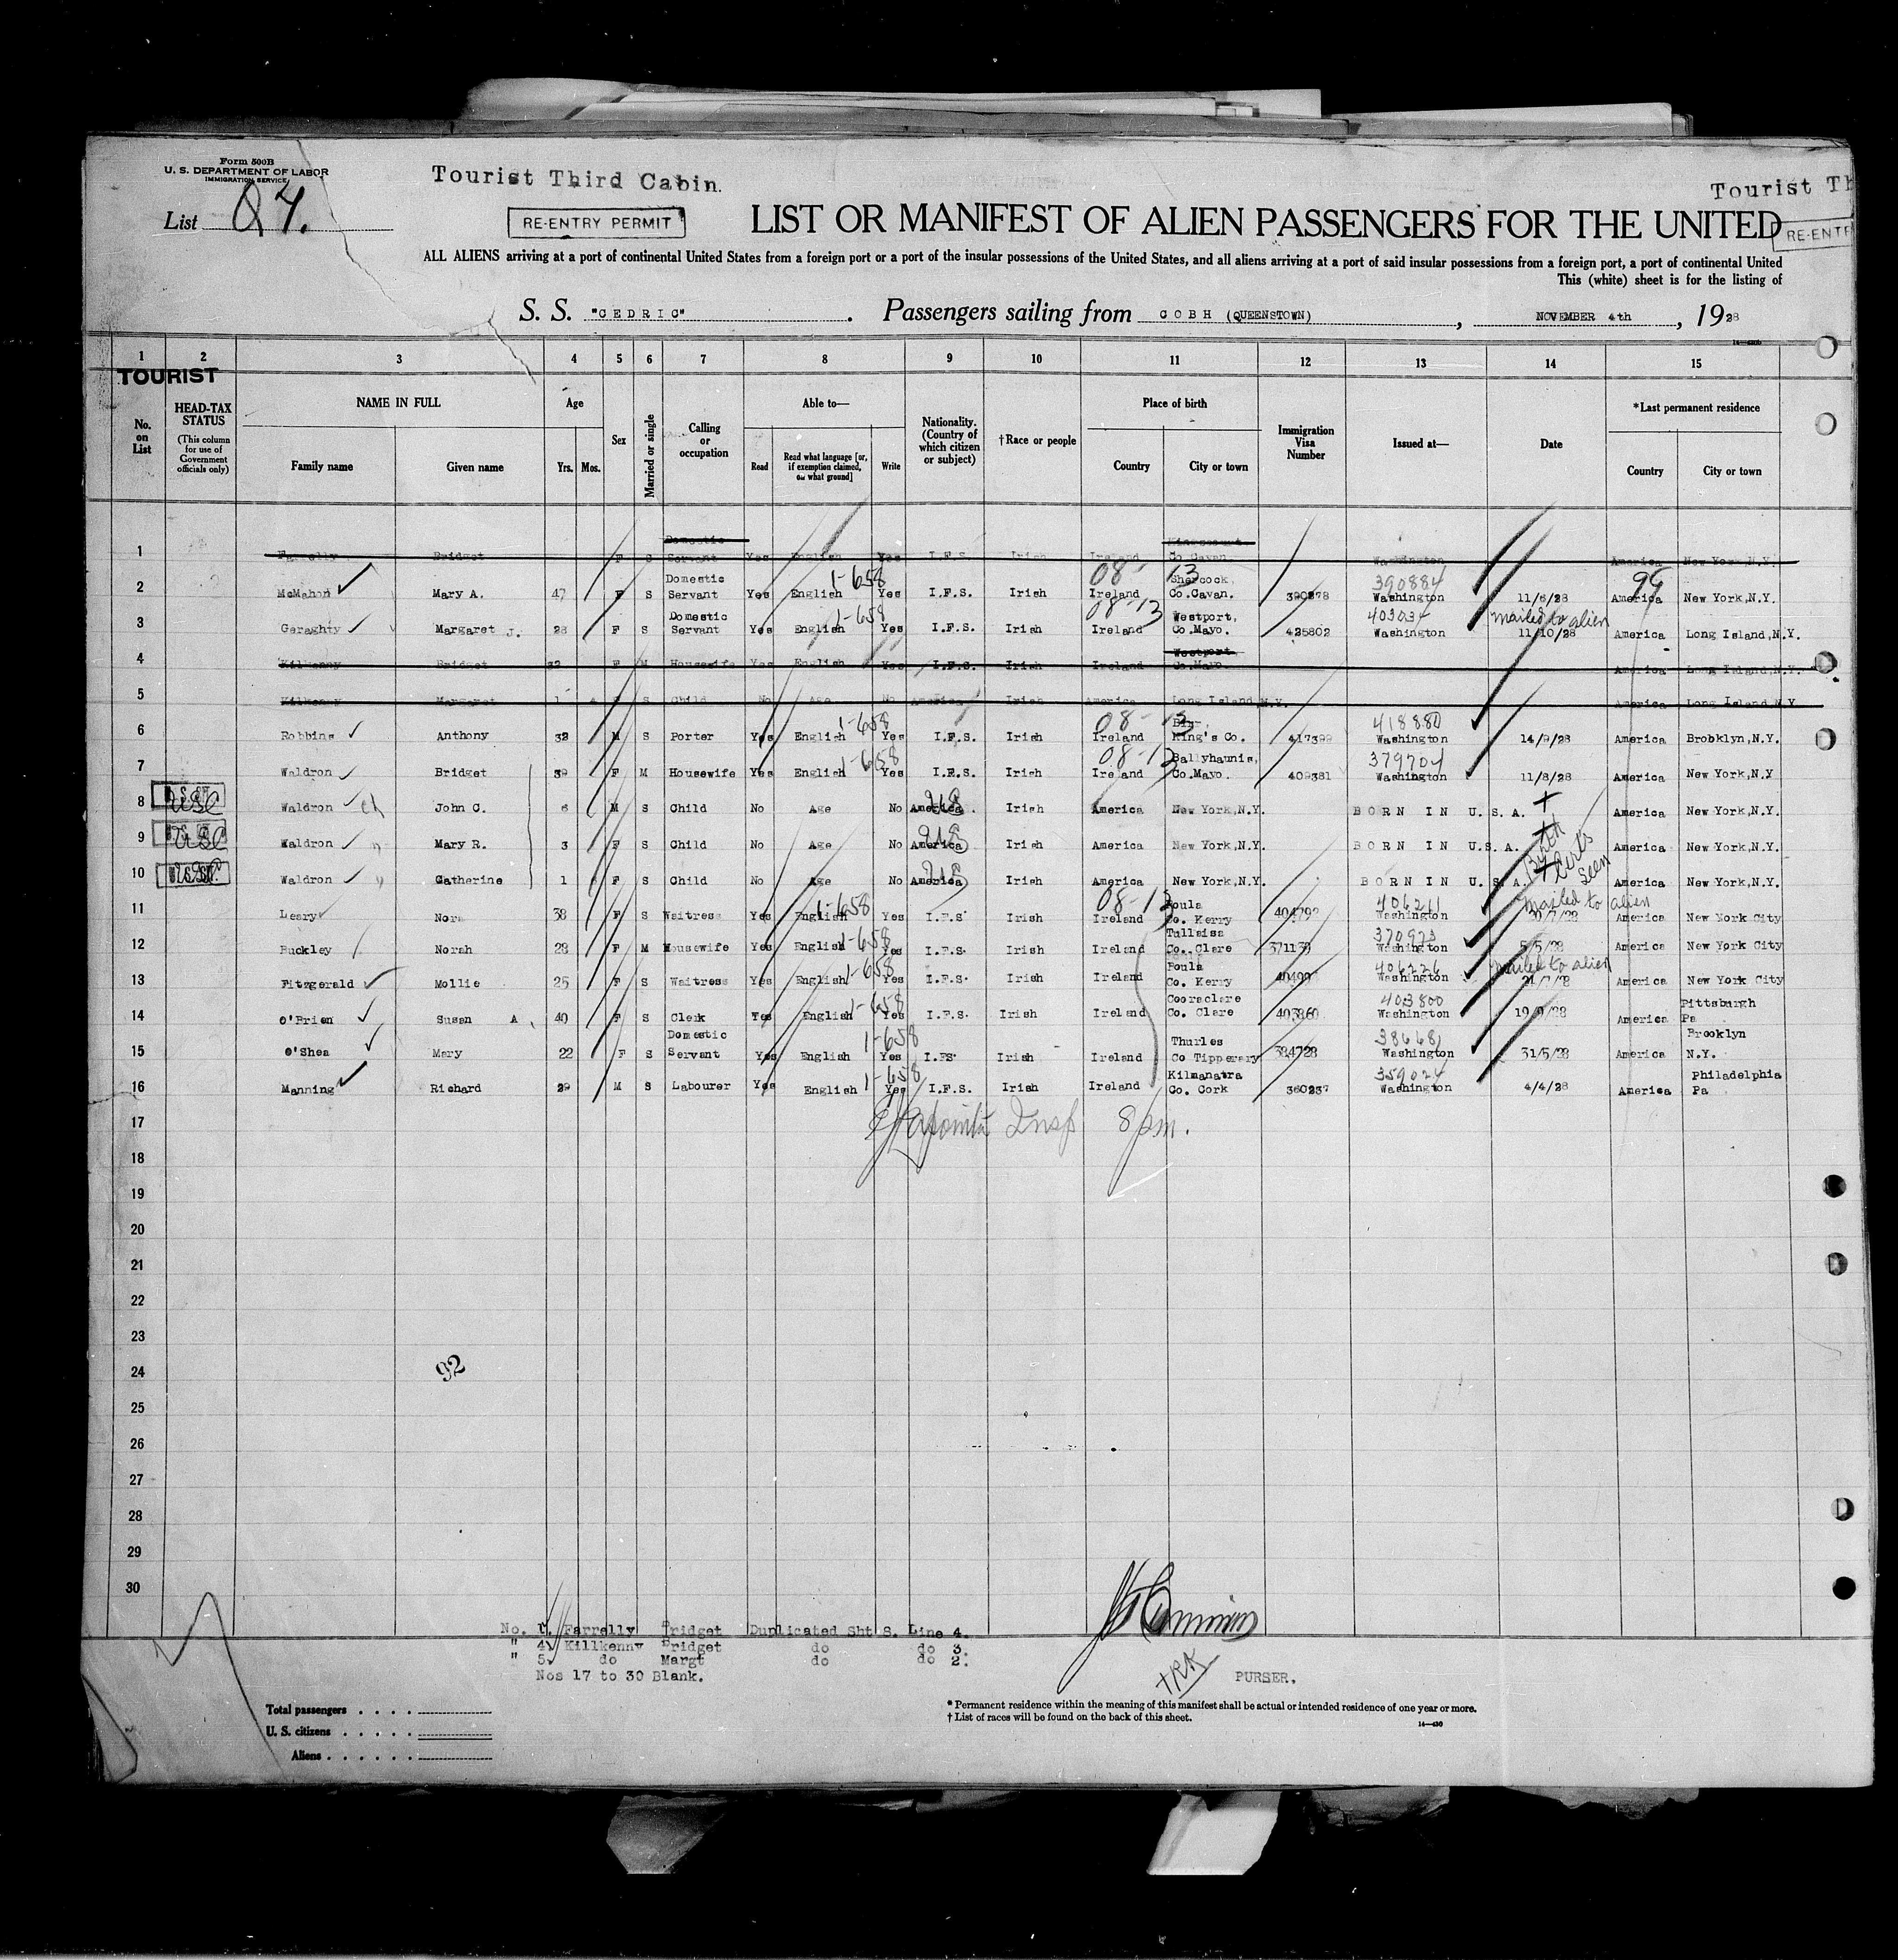 Form 500B
U. S. DEPARTMENT OF LABOR
IMMIGRATION SERVICE
Tourist Third Cabin.
Tourist Th
List
RE-ENTRY PERMIT
LIST OR MANIFEST OF ALIEN PASSENGERS FOR THE UNITED
RE-ENTR
ALL ALIENS arriving at a port of continental United States from a foreign port or a port of the insular possessions of the United States, and all aliens arriving at a port of said insular possessions from a foreign port, a port of continental United
This (white) sheet is for the listing of
S. S. "CEDRIC" . Passengers sailing from COBH (QUEENSTOWN) , NOVEMBER 4th , 1928
1 2 3 4 5 6 7 8 9 10 11 12 13 14 15
TOURIST
No. on List
HEAD-TAX STATUS (This column for use of Government officials only)
NAME IN FULL Family name Given name
Age Yrs. Mos.
Sex
Married or single
Calling or occupation
Able to— Read Read what language [or, if exemption claimed, on what ground] Write
Nationality. (Country of which citizen or subject)
†Race or people
Place of birth Country City or town
Immigration Visa Number
Issued at—
Date
*Last permanent residence Country City or town
1 Farrelly Bridget F S Domestic Servant Yes English Yes I.F.S. Irish Ireland Kingscourt Co Cavan. Washington America New York,N.Y.
2 McMahon Mary A. 47 F S Domestic Servant Yes English 1-658 Yes I.F.S. Irish 08-13 Ireland Shercock, Co.Cavan. 390878 390884 Washington 11/6/28 99 America New York,N.Y.
3 Geraghty Margaret J. 28 F S Domestic Servant Yes English 1-658 Yes I.F.S. Irish 08-13 Ireland Westport, Co.Mayo. 425802 403034 Washington mailed to alien 11/10/28 America Long Island,N.Y.
4 Kilkenny Bridget 32 F M Housewife Yes English Yes I.F.S. Irish Ireland Westport Co.Mayo America Long Island,N.Y.
5 Kilkenny Margaret 1 F S Child No Age No America Irish America Long Island,N.Y. America Long Island N.Y
6 Robbins Anthony 32 M S Porter Yes English 1-658 Yes I.F.S. Irish 08-13 Ireland King's Co. 417399 418880 Washington 14/9/28 America Brooklyn,N.Y.
7 Waldron Bridget 39 F M Housewife Yes English 1-658 Yes I.F.S. Irish 08-13 Ireland Ballyhaunis, Co.Mayo. 409381 379704 Washington 11/8/28 America New York,N.Y
8 USC Waldron John C. 6 M S Child No Age No America Irish America New York,N.Y. BORN IN U.S.A. America New York,N.Y.
9 USC Waldron Mary R. 3 F S Child No Age No America Irish America New York,N.Y. BORN IN U.S.A. America New York,N.Y.
10 USC Waldron Catherine 1 F S Child No Age No America Irish America New York,N.Y. BORN IN U.S.A. Birth Certs seen America New York,N.Y.
11 Leary Nora 38 F S Waitress Yes English 1-658 Yes I.F.S. Irish 08-13 Ireland Co. Kerry 406211 Washington mailed to alien America New York City
12 Buckley Norah 28 F M Housewife Yes English 1-658 Yes I.F.S. Irish Ireland Co. Clare 371159 370973 Washington 5/5/28 America New York City
13 Fitzgerald Mollie 25 F S Waitress Yes English 1-658 Yes I.F.S. Irish Ireland Co. Kerry 406226 Washington mailed to alien America New York City
14 O'Brien Susan A. 40 F S Clerk Yes English 1-658 Yes I.F.S. Irish Ireland Cooraclare Co. Clare 403860 403800 Washington 19/9/28 America Pittsburgh Pa
15 O'Shea Mary 22 F S Domestic Servant Yes English 1-658 Yes I.FS. Irish Ireland Thurles Co Tipperary 384728 38668 Washington 31/5/28 America Brooklyn N.Y.
16 Manning Richard 29 M S Labourer Yes English 1-658 Yes I.F.S. Irish Ireland Kilmanatra Co. Cork 360237 359024 Washington 4/4/28 America Philadelphia Pa
17 Insp 8 pm.
18
19
20
21
22
23
24 92
25
26
27
28
29
30
No. 1. Farrelly Bridget Duplicated Sht S. Line 4.
" 4. Killkenny Bridget do do 3.
" 5. do Margt do do 2.
Nos 17 to 30 Blank.
PURSER.
Total passengers . . . .
U. S. citizens . . . . .
Aliens . . . . . .
* Permanent residence within the meaning of this manifest shall be actual or intended residence of one year or more.
† List of races will be found on the back of this sheet.
14—430